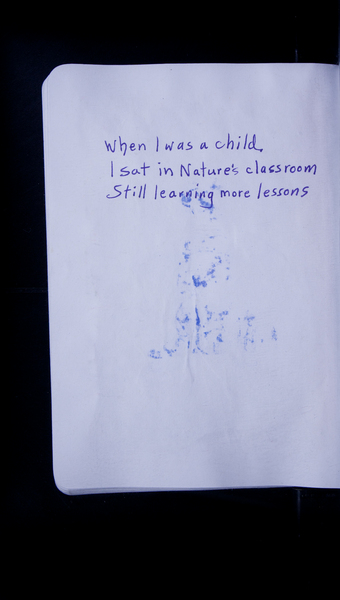 When I was a child,
I sat in Nature's classroom
Still learning more lessons